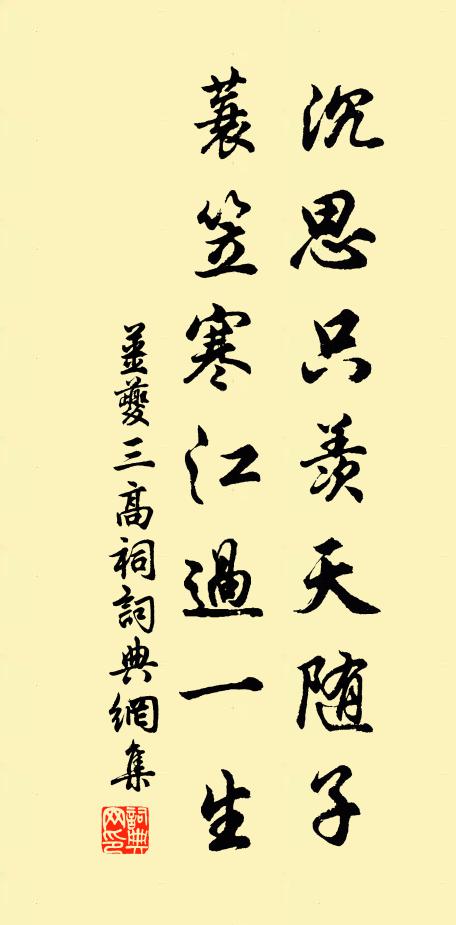 沉思只羨天随子
蓑笠寒江過一生
姜夔三高祠詞典網集
詞典網印